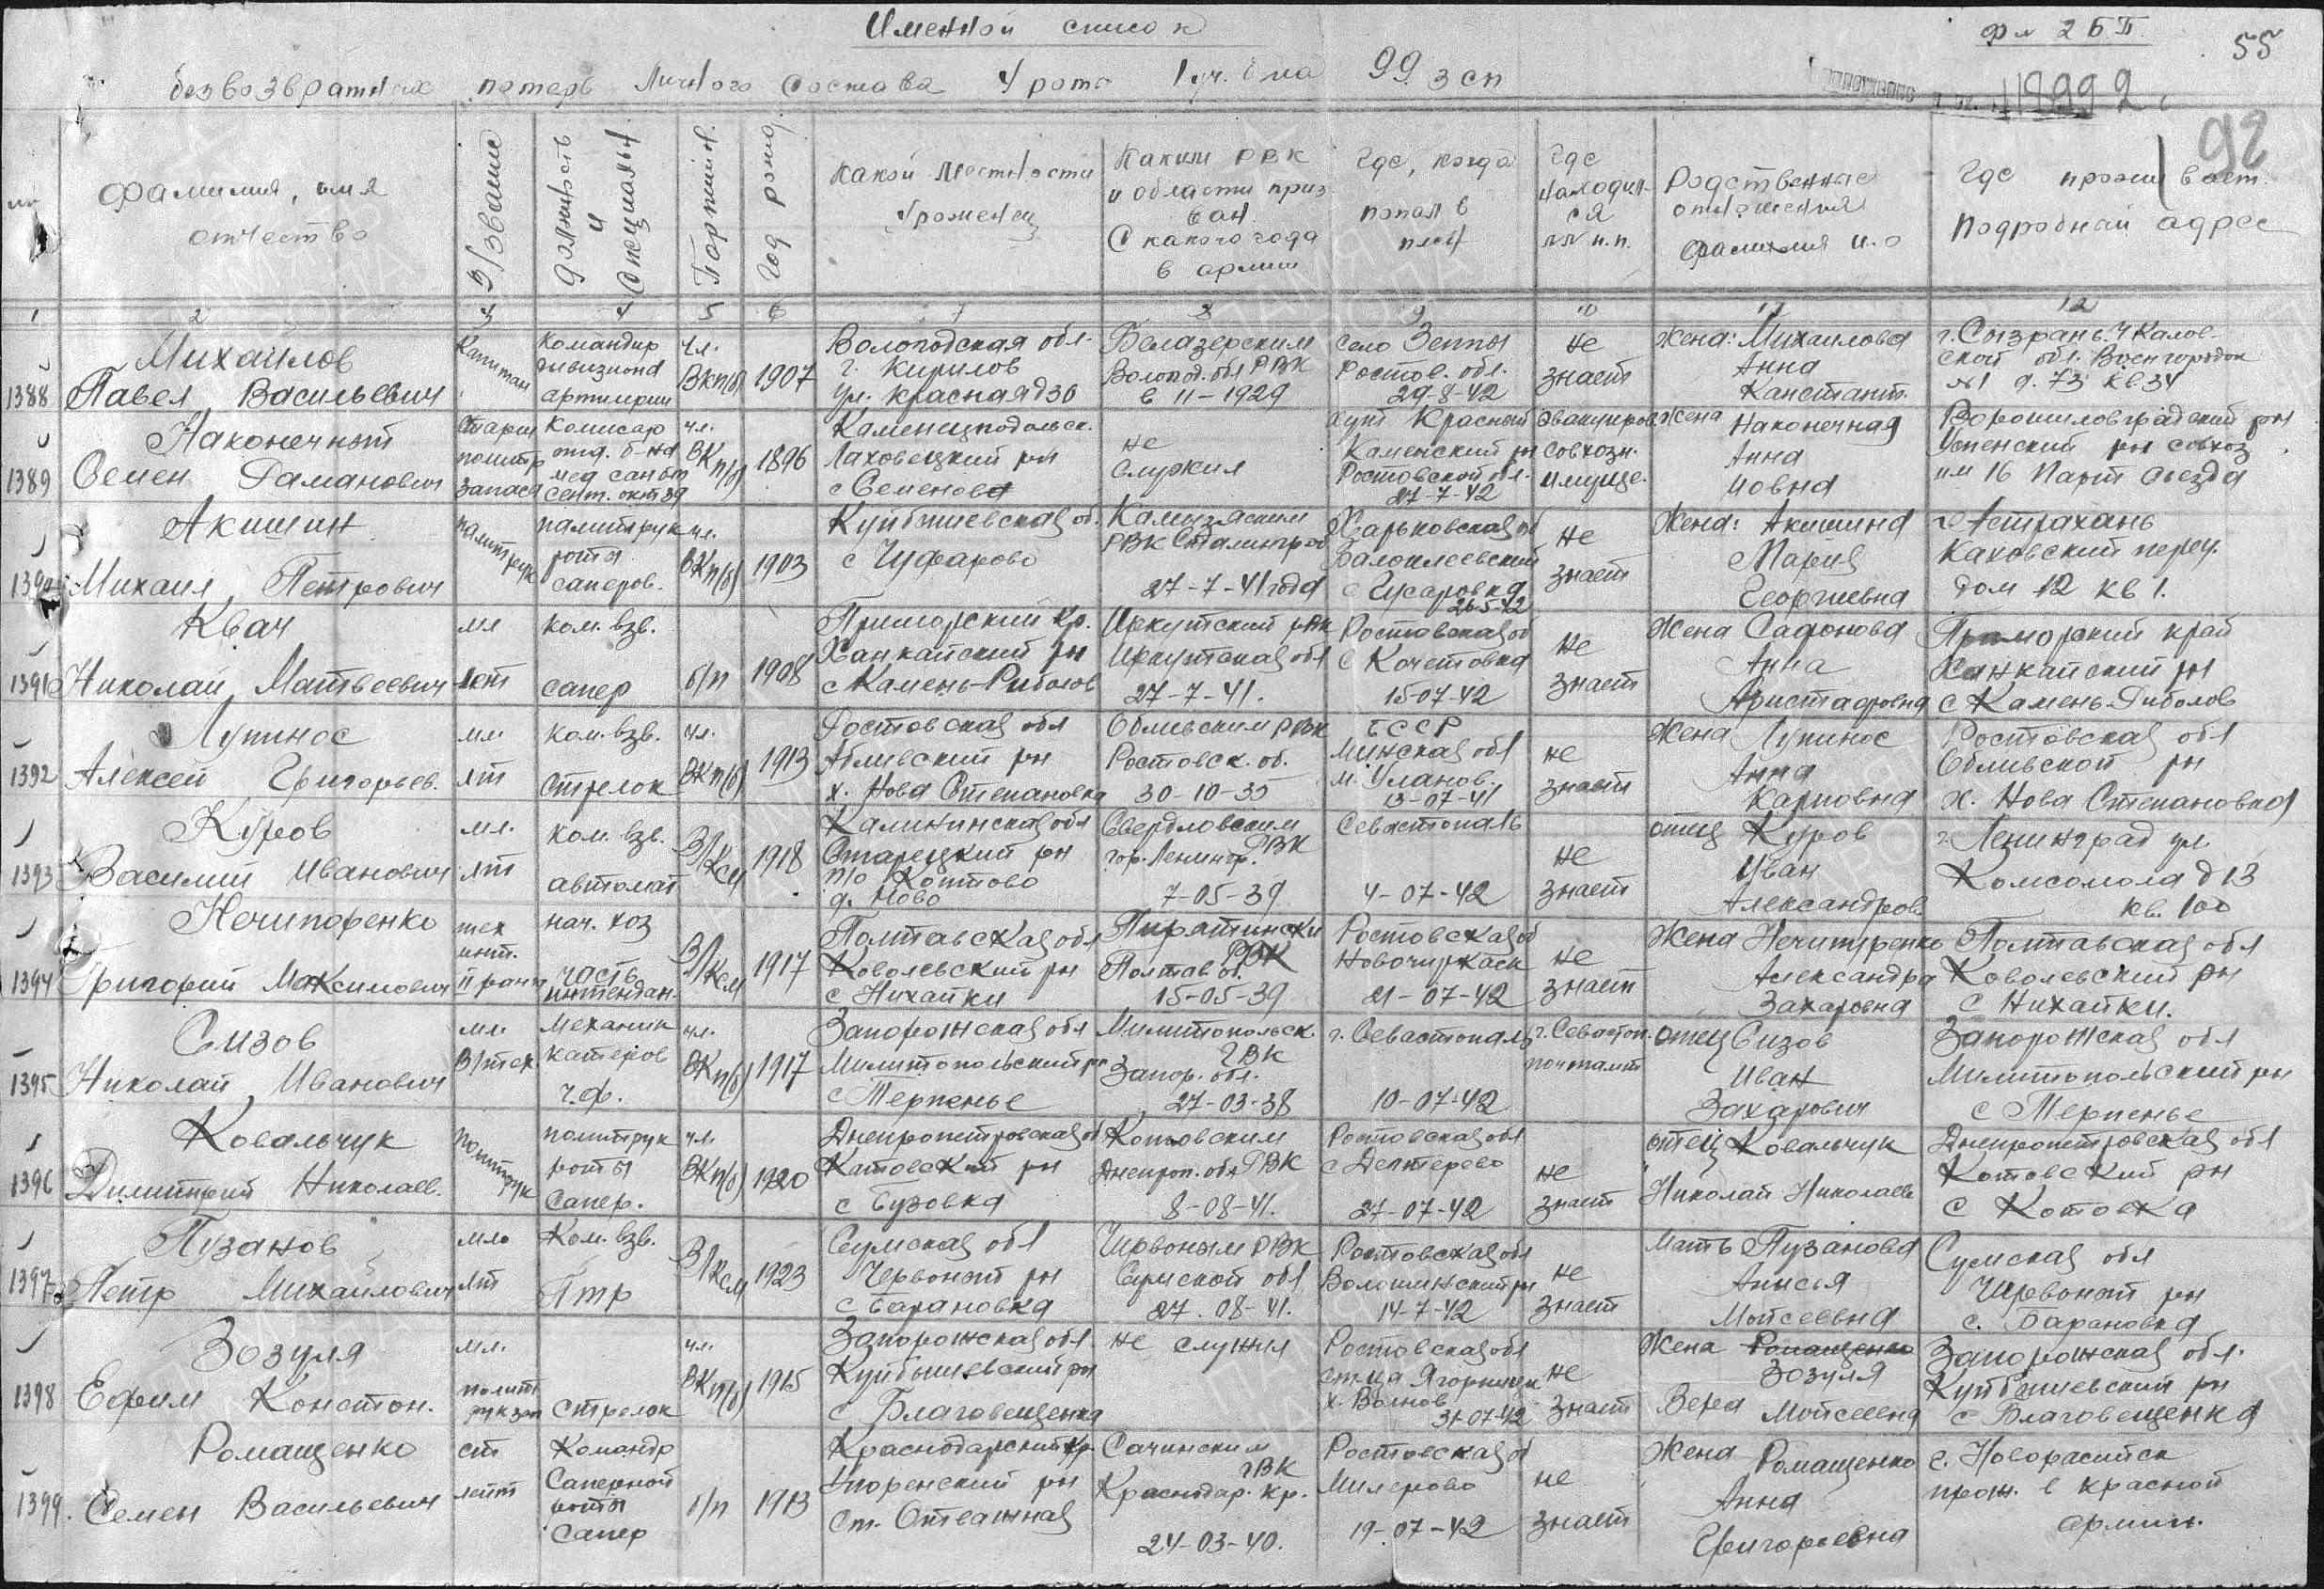 Именной список
Фл 2 БП
55
безвозвратных потерь личного состава 4 роты 1 уч. б-на 99 зсп
11999 2
92
Фамилия, имя
отчество
В/звание
Должность
и
специальн
Партийн.
Год рожд.
какой местности
уроженец
Каким РВК
и области приз
ван.
С какого года
в армии
Где, когда
попал в
плен
Где
находил-
ся
Родственные
отношения
фамилия и.о
Где проживает.
Подробный адрес
1 2 3 4 5 6 7 8 9 10 11 12
1388
Михайлов
Павел Васильевич
Капитан
командир
дивизиона
артилерии
чл.
ВКП(б)
1907
Вологодская обл.
г. Кирилов
ул. красная д 30
Белазерским
Вологод. обл РВК
в 11-1929
село Зеппы
Ростов. обл.
29-8-42
не
знает
Жена: Михаилова
Анна
Констант.
г. Сызрань. Ч Калов-
ской обл. Военгородок
№1 д. 73 кв 34
1389
Наконечный
Семен Даманович
Старш
политр
запаса
Комисар
отд. б-на
мед сан бт
сент. окт 39
чл.
ВКП(б)
1896
Каменецподольск.
Лаховецкий рн
с Семенова
не
служил
хут Красный
Каменский рн
Ростовской обл.
27-7-42
Эвакуиров.
совхозн.
имуще.
Жена Наконечная
Анна
Иовна
Ворошиловградский рн
Успенский рн совхоз
им 16 Парт съезда
1390
Акишин
Михаил Петрович
политрук
палитрук
роты
саперов.
чл.
ВКП(б)
1903
Куйбышевская об.
с Чуфарово
Камызяским
РВК Сталинград
27-7-41 года
Харьковская об
Балоклеевский
с Гусаровка
26-5-42
не
знает
Жена: Акишина
Мария
Георгиевна
г. Астрахань
Каховский переу.
дом 12 кв 1.
1391
Квач
Николай Матвеевич
мл
лт
ком. взв.
сапер
б/п
1908
Приморский кр.
Ханкайский рн
с Камень-Риболов
Иркутский рвк
Иркутская обл
27-7-41.
Ростовская об
с Кочетовка
15-07-42
не
знает
Жена Сафонова
Анна
Аристафовна
Приморский край
Ханкайский рн
с Камень-Риболов
1392
Лупинос
Алексей Григорьев.
мл.
лт
ком. взв.
стрелок
чл.
ВКП(б)
1913
Ростовская обл
Абливский рн
х. Нова Степановка
Обливским РВК
Ростовск. об.
30-10-35
БССР
Минская обл
м. Уланов.
13-07-41
не
знает
Жена Лупинос
Анна
Карповна
Ростовская обл
Обливской рн
х. Нова Степановка
1393
Куров
Василий Иванович
мл.
лт
ком. взв.
автомат
ВЛКСМ
1918
Калининская обл
Старецкий рн
п/о Коптово
д. Ново
Свердловским
гор. Ленингр. РВК
7-05-39
Севастополь
4-07-42
не
знает
отец Куров
Иван
Александров.
г. Ленинград ул.
Комсомола д 13
кв. 100
1394
Нечипоренко
Григорий Максимович
тех
инт.
II ранга
нач. хоз
часть
интендан.
ВЛКСМ
1917
Полтавская обл
Коволевский рн
с Нихайки
Пирятински
РВК
Полтав об.
15-05-39
Ростовская об
Новочиркаск
21-07-42
не
знает
Жена Нечипоренко
Александра
Захаровна
Полтавская обл
Коволевский рн
с Нихайки.
1395
Сизов
Николай Иванович
мл.
В/тех.
механик
катеров
ч.ф.
чл.
ВКП(б)
1917
Запорожская обл
Милитопольский рн
с Терпенье
Милитопольск.
ГВК
Запор. обл.
27-03-38
г. Севастополь
10-07-42
г. Севастоп.
почтамт
отец Сизов
Иван
Захарович
Запорожская обл
Милитопольский рн
с Терпенье
1396
Ковальчук
Димитрий Николаев.
политрук
политрук
роты
сапер.
чл.
ВКП(б)
1920
Днепропетровская об
Котовский рн
с Бузовка
Котовским
Днепроп. обл РВК
8-08-41.
Ростовская обл
с Дептерево
27-07-42
не
знает
отец Ковальчук
Николай Николаев
Днепропетровская обл
Котовский рн
с Котовка
1397
Пузанов
Петр Михайлович
мл
лт
Ком. взв.
Птр
ВЛКСМ
1923
Сумская обл
Червоный рн
с Барановка
Червоным РВК
Сумской обл
27.08-41.
Ростовская обл
Волошинский рн
14-7-42
не
знает
Мать Пузанова
Анисья
Мойсеевна
Сумская обл
Червоный рн
с. Барановка
1398
Зозуля
Ефим Констон.
мл.
полит
рук зап
стрелок
чл.
ВКП(б)
1915
Запорожская обл.
Куйбышевский рн
с Благовещенка
не служил
Ростовская обл
ст-ца Ягорницк
х. Воинов
31-07-42
не
знает
Жена Ромащенко
Зозуля
Вера Мойсеевна
Запорожская обл.
Куйбышевский рн
с Благовещенка
1399.
Ромащенко
Семен Васильевич
ст
лейт
Командр
Саперной
роты
Сапер
б/п
1913
Краснодарский кр.
Упоренский рн
ст. Отважная
Сачинским
ГВК
Краснодар. кр.
24-03-40.
Ростовская об
Милерово
19-07-42
не
знает
Жена Ромащенко
Анна
Григорьевна
г. Новорасийск
прож. в красной
армии.